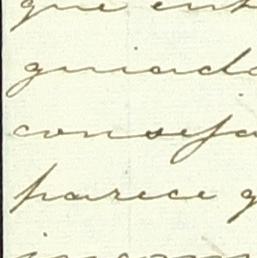 que ent
guiado
conseja
parece q